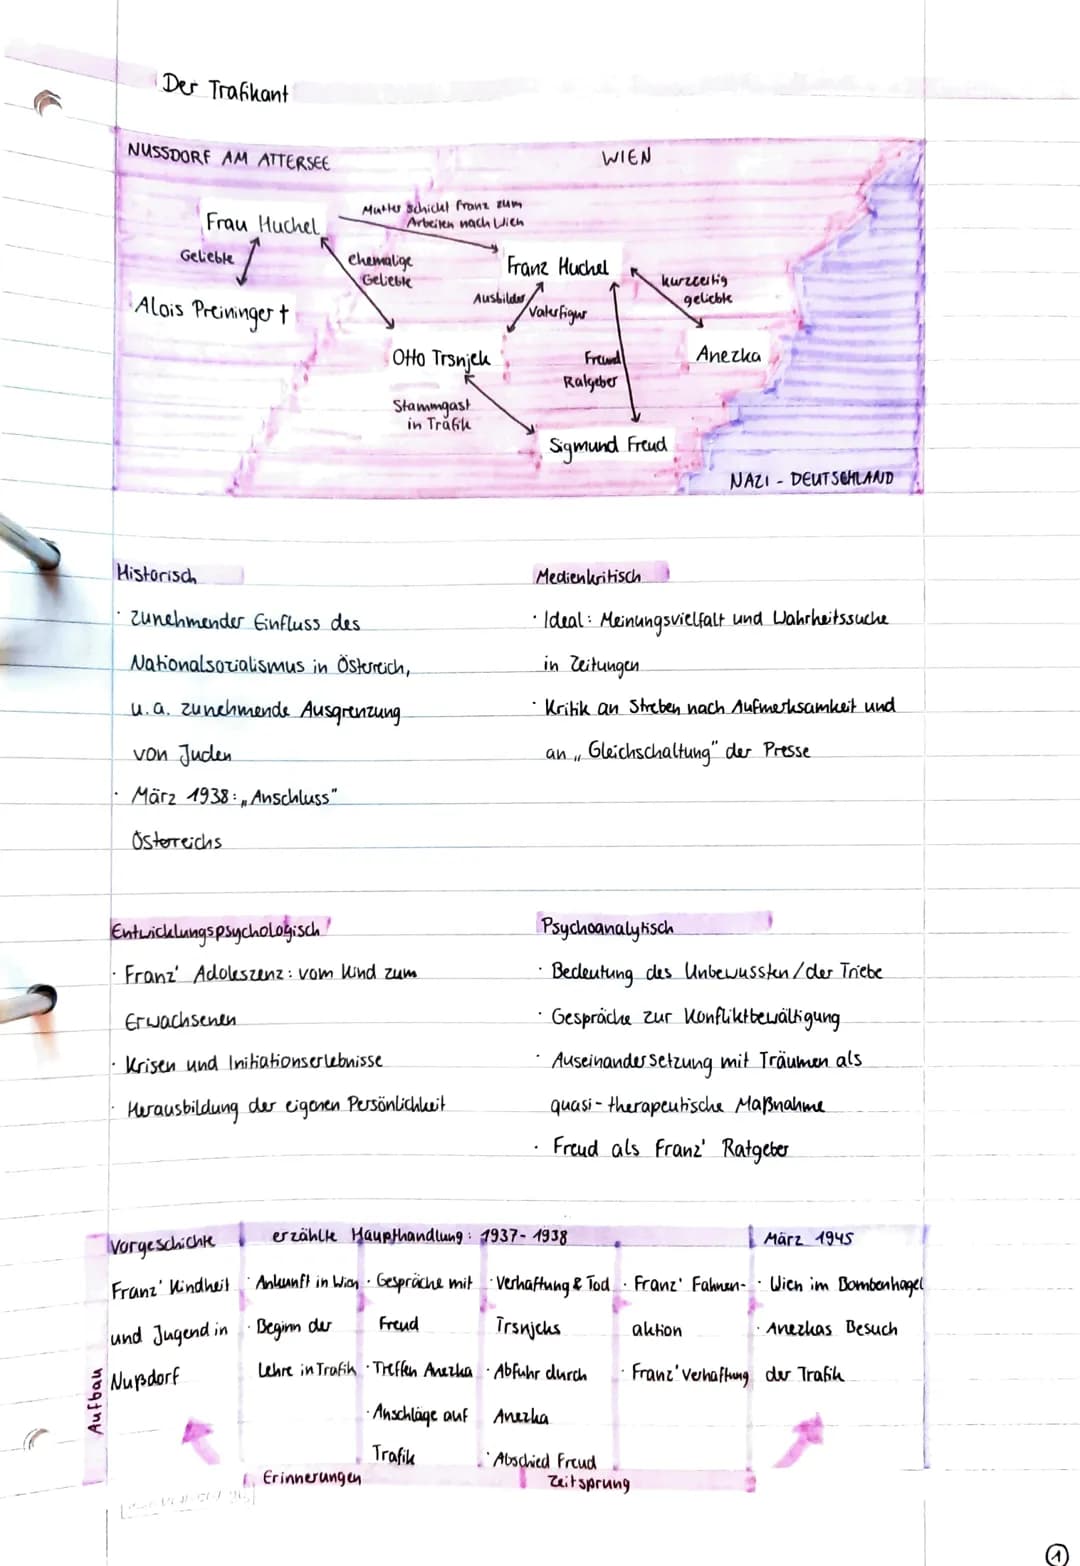 Der Trafikant
NUSSDORF AM ATTERSEE
WIEN
Frau Huchel
Mutter schickt Franz zum
Arbeiten nach Wien
Geliebte
ehemalige
Geliebte
Franz Huchel
kurzzeitig
geliebte
Alois Preininger †
Ausbilder
Vaterfigur
Otto Trsnjek
Freund
Ratgeber
Anezka
Stammgast
in Trafik
Sigmund Freud
NAZI - DEUTSCHLAND
Historisch
· zunehmender Einfluss des
Nationalsozialismus in Österreich,
u.a. zunehmende Ausgrenzung
von Juden
· März 1938: „Anschluss"
Österreichs
Medienkritisch
· Ideal: Meinungsvielfalt und Wahrheitssuche
in Zeitungen
· Kritik an Streben nach Aufmerksamkeit und
an „Gleichschaltung" der Presse
Entwicklungspsychologisch
· Franz' Adoleszenz: vom Kind zum
Erwachsenen
· Krisen und Initiationserlebnisse
· Herausbildung der eigenen Persönlichkeit
Psychoanalytisch
· Bedeutung des Unbewussten/der Triebe
· Gespräche zur Konfliktbewältigung
· Auseinandersetzung mit Träumen als
quasi-therapeutische Maßnahme
· Freud als Franz' Ratgeber
Aufbau
Vorgeschichte
Franz' Kindheit
und Jugend in
Nußdorf
erzählte Haupthandlung: 1937-1938
· Ankunft in Wien
· Beginn der
Lehre in Trafik
· Gespräche mit
Freud
· Treffen Anezka
· Anschläge auf
Trafik
· Verhaftung & Tod
Trsnjeks
· Abfuhr durch
Anezka
· Abschied Freud
· Franz' Fahnen-
aktion
· Franz' Verhaftung
März 1945
· Wien im Bombenhagel
· Anezkas Besuch
der Trafik
Erinnerungen
Zeitsprung
1